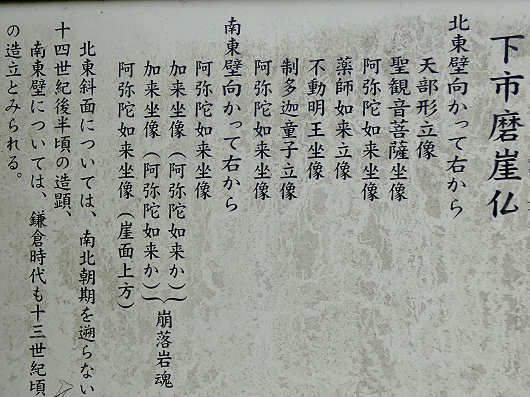 下市磨崖仏
北東壁向かって右から
天部形立像
聖観音菩薩坐像
阿弥陀如来坐像
薬師如来立像
不動明王坐像
制多迦童子立像
阿弥陀如来坐像
南東壁向かって右から
阿弥陀如来坐像
加来坐像（阿弥陀如来か）
加来坐像（阿弥陀如来か）
崩落岩魂
阿弥陀如来坐像（崖面上方）
北東斜面については、南北朝期を遡らない
十四世紀後半頃の造顕、
南東壁については、鎌倉時代も十三世紀頃
の造立とみられる。